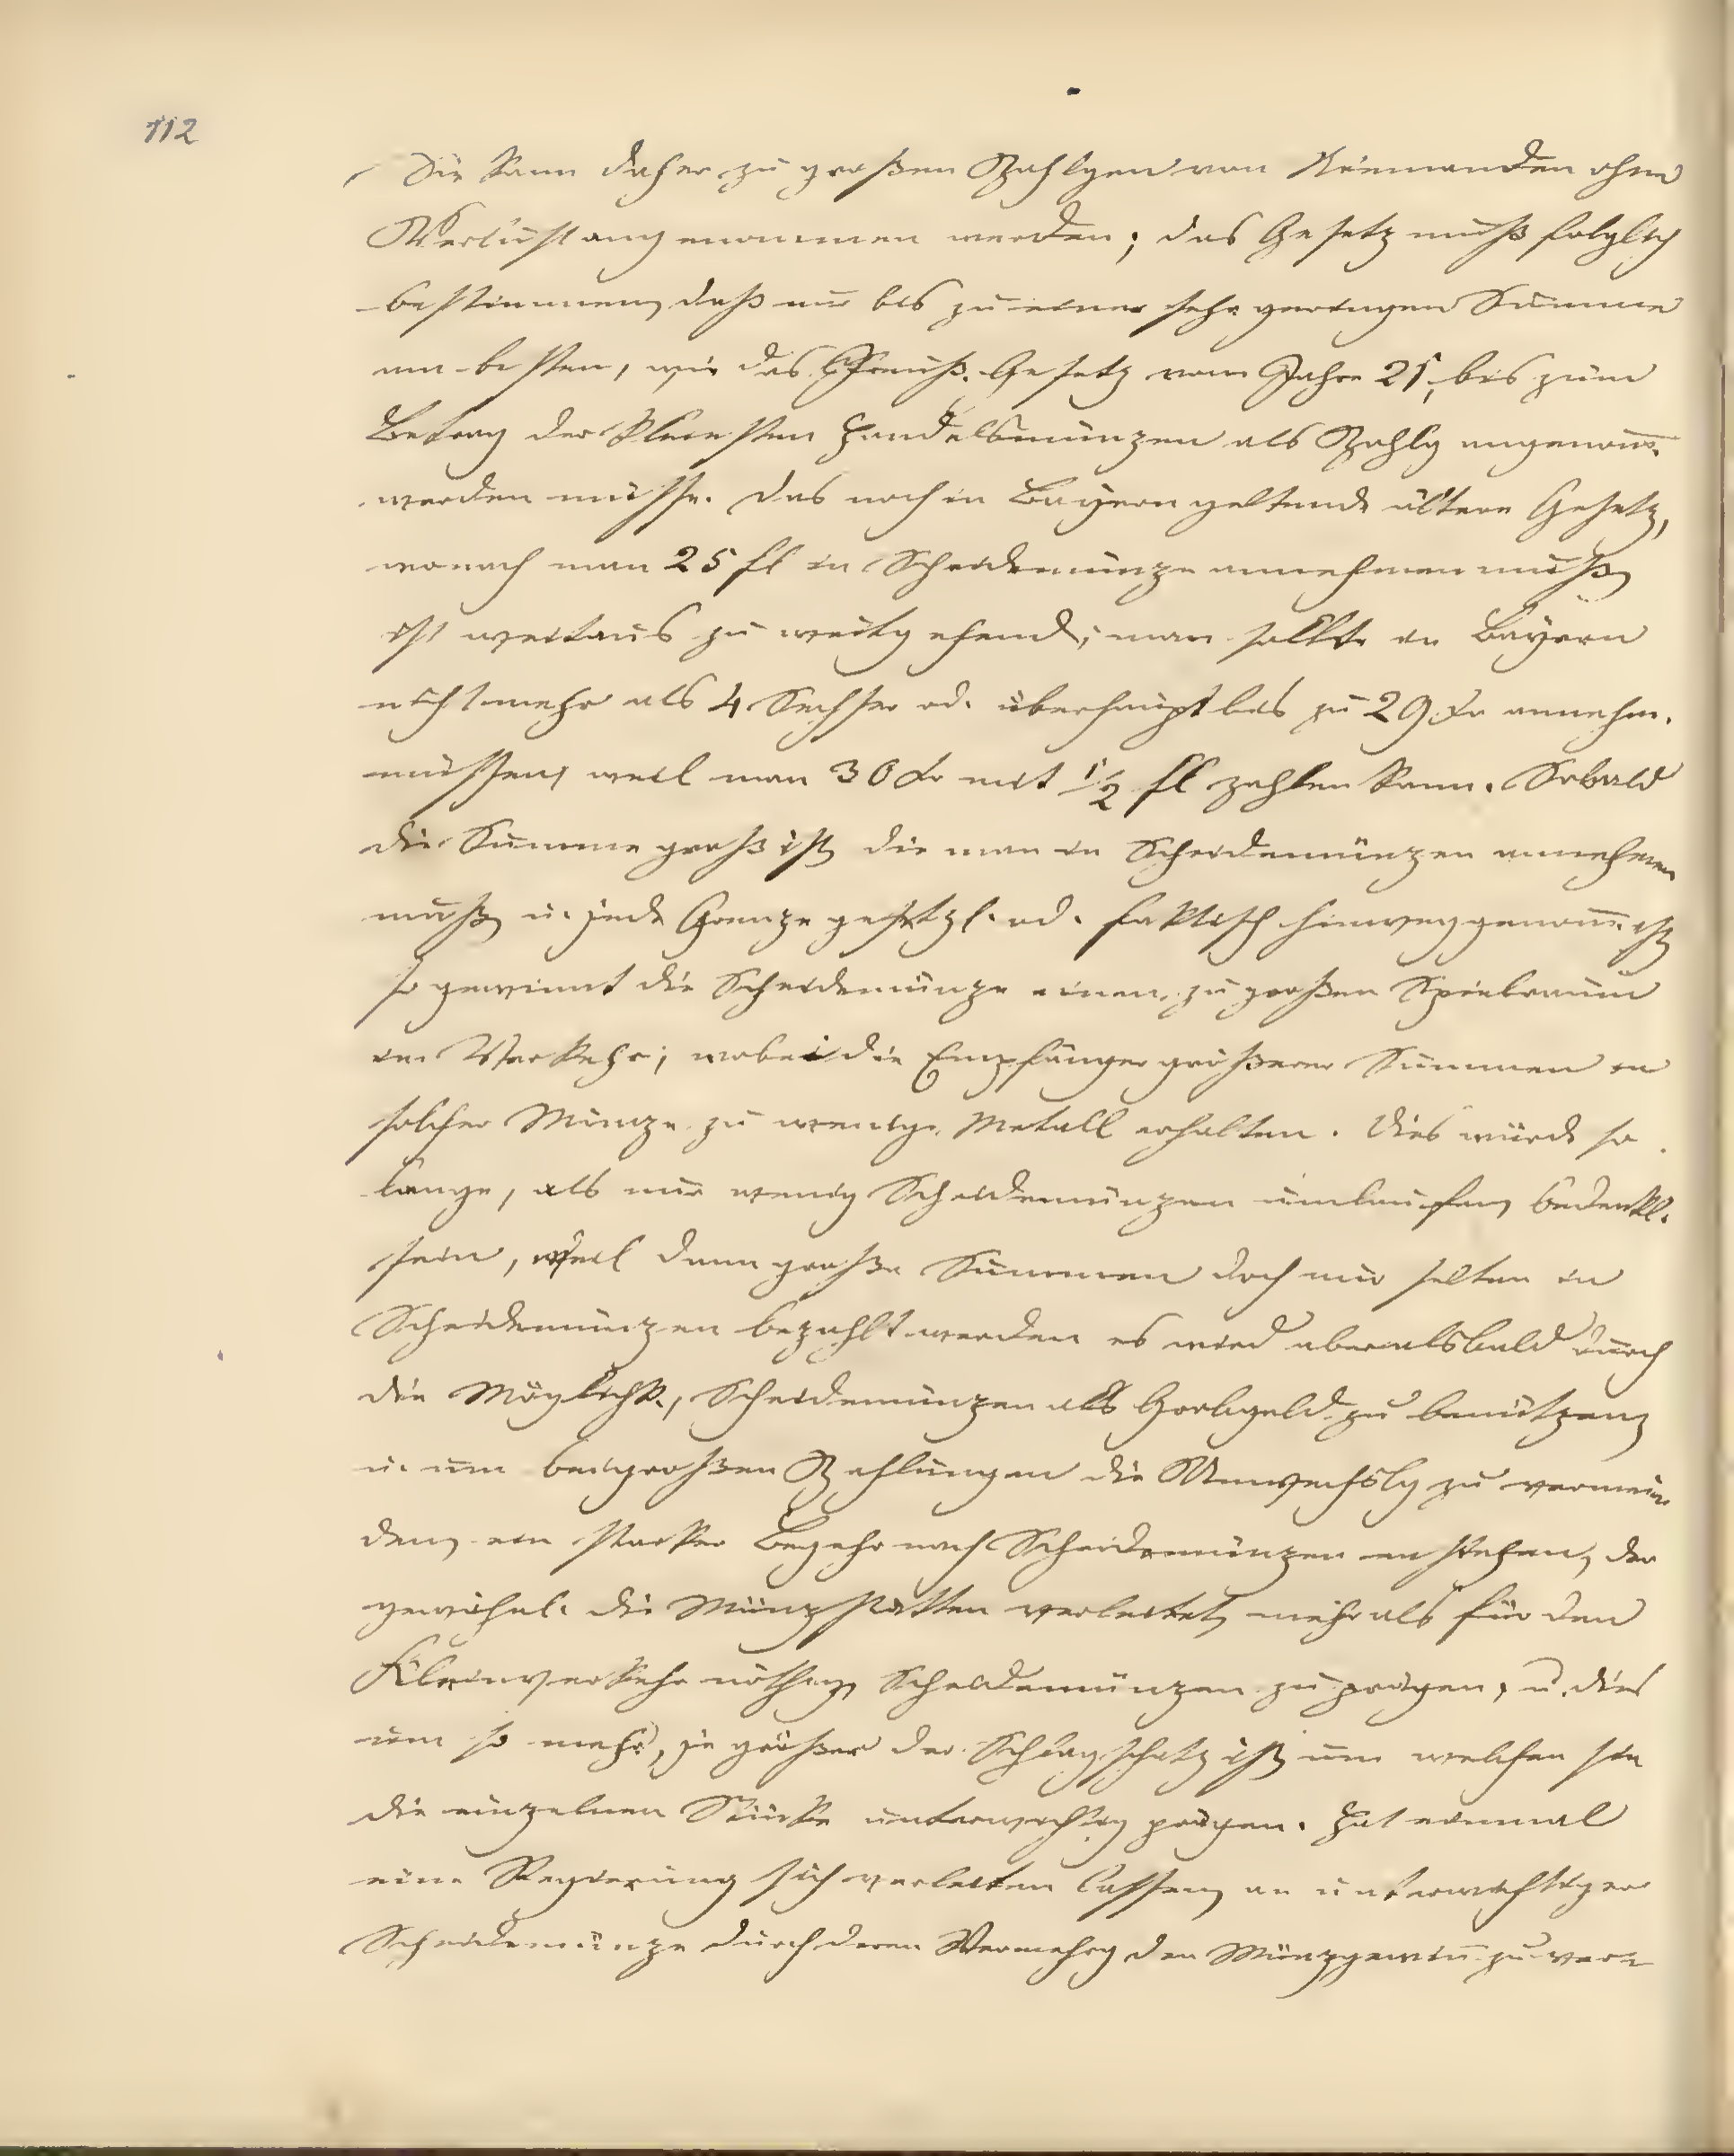 112
Die kann daher zu großen Zahlgen von Niemanden ohne
Verlust angenommen werden; das Gesetz muß folglich
bestimmen, daß nur bis zu einer sehr geringen Summe
am besten, wie das Preuß. Gesetz vom Jahre 21, bis zum
Betrag der kleinsten Handelsmünzen als Zahlg angenom̄.
werden müsse. Das noch in Bayern geltende ältere Gesetz,
wonach man 25 fl in Scheidemünze annehmen muß,
ist weitaus zu weitgehend; man sollte in Bayern
nicht mehr als 4 Sechser od. überhaupt bis zu 29 Kr annehm.
müssen, weil man 30 Kr mit 1/2 fl zahlen kann. Sobald
die Summe groß ist, die man in Scheidemünzen annehmen
muß, u. jede Grenze gesetzl. od. faktisch hinweggenom̄. ist,
so gewinnt die Scheidemünze einen zu großen Spielraum
im Verkehr; wobei die Empfänger größerer Summen in
solcher Münze zu wenig Metall erhalten. Dies würde so
lange, als nur wenig Scheidemünzen umlaufen, bedenkl.
sein, weil dann große Summen doch nur selten in
Scheidemünzen bezahlt werden es wird aber alsbald durch
die Möglichk., Scheidemünzen als Grobgeld zu benützen,
u. um bei großen Zahlungen die Umwechslg zu vermei⸗
den, ein starker Begehr nach Scheidemünzen entstehen, der
gewöhnl. die Münzstätten verleitet, mehr als für den
Kleinverkehr nöthig, Scheidemünzen zu prägen, u. dies
um so mehr, je größer der Schlagschatz ist, um welchen sie
die einzelnen Stücke unterwichtig prägen. Hat einmal
eine Regierung sich verleiten lassen, an unterwichtiger
Scheidemünze durch deren Vermehrg den Münzgewin̄ zu ver⸗